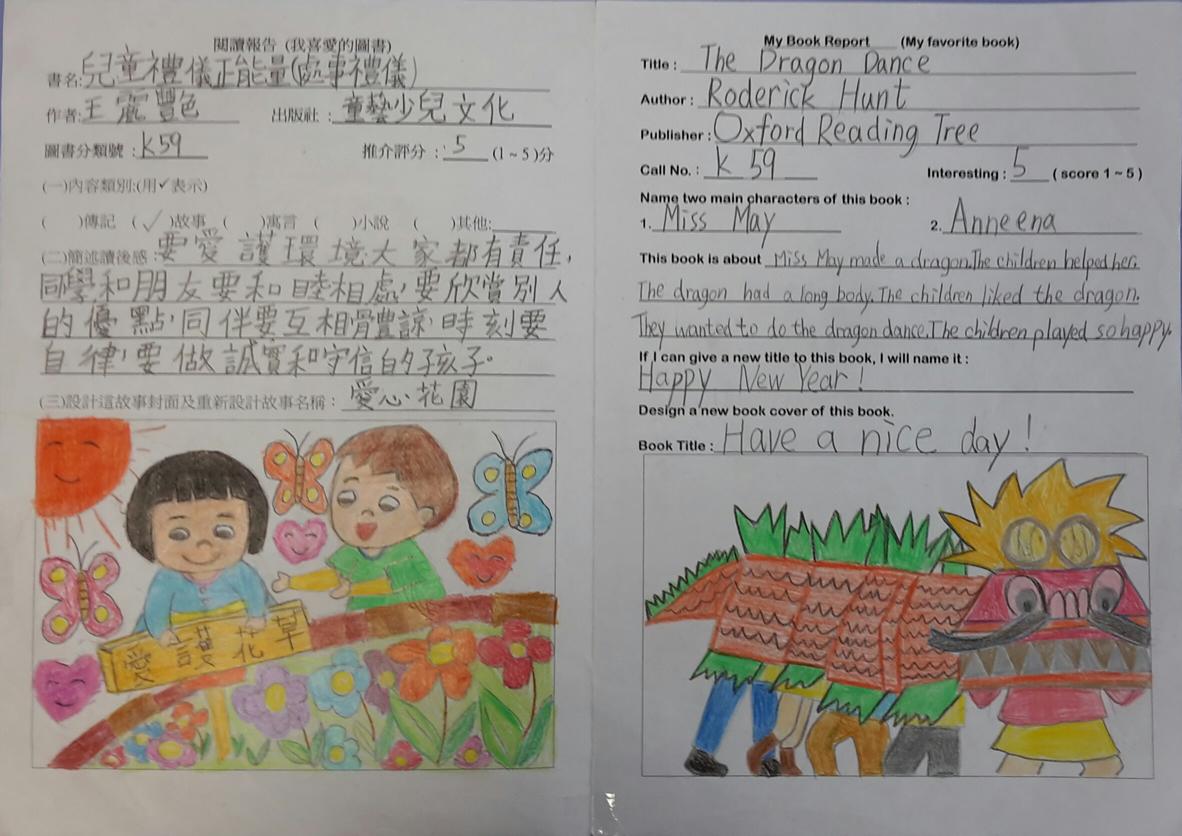 閱讀報告 (我喜愛的圖書)
書名:兒童禮儀正能量(處事禮儀)
作者:王麗艷 出版社:童藝少兒文化
圖書分類號:k59 推介評分:5 (1~5)分
(一)內容類別:(用✓表示)
( )傳記 (✓)故事 ( )寓言 ( )小說 ( )其他:
(二)簡述讀後感:要愛護環境大家都有責任,
同學和朋友要和睦相處,要欣賞別人
的優點,同伴要互相體諒,時刻要
自律,要做誠實和守信的孩子。
(三)設計這故事封面及重新設計故事名稱:愛心花園
愛護花草
My Book Report (My favorite book)
Title : The Dragon Dance
Author : Roderick Hunt
Publisher : Oxford Reading Tree
Call No. : k 59 Interesting : 5 ( score 1 ~ 5 )
Name two main characters of this book :
1. Miss May 2. Anneena
This book is about Miss May made a dragon.The children helped her.
The dragon had a long body.The children liked the dragon.
They wanted to do the dragon dance.The children played so happy.
If I can give a new title to this book, I will name it :
Happy New Year!
Design a new book cover of this book.
Book Title : Have a nice day!